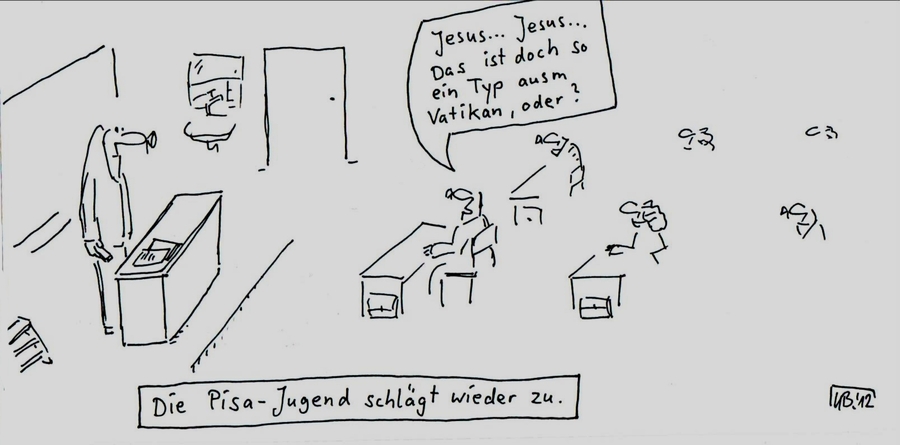 Jesus... Jesus...
Das ist doch so
ein Typ ausm
Vatikan, oder?
Die Pisa-Jugend schlägt wieder zu.